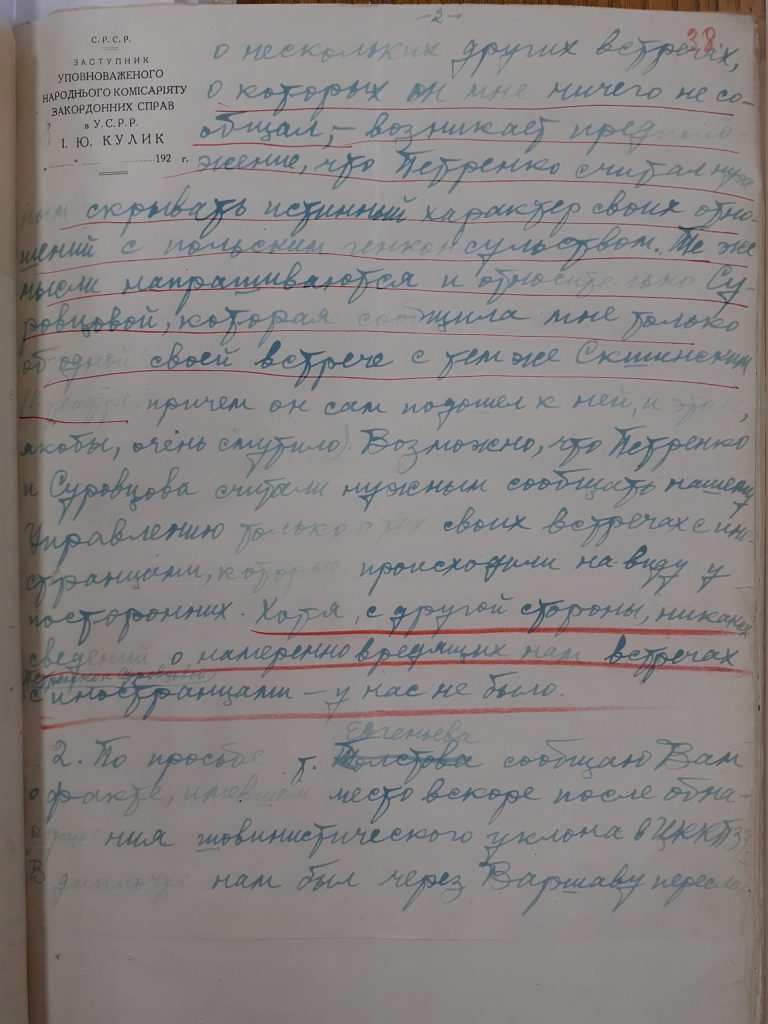 -2-
38.
С.Р.С.Р.
ЗАСТУПНИК
УПОВНОВАЖЕНОГО
НАРОДНЬОГО КОМІСАРІЯТУ
ЗАКОРДОННИХ СПРАВ
в У.С.Р.Р.
І. Ю. КУЛИК
"........" ........ 192 г.
о нескольких других встречах,
о которых он мне ничего не со-
общал, – возникает предполо-
жение, что Петренко считал нуж-
ным скрывать истинный характер своих отно-
шений с польским генконсульством. Те же
мысли напрашиваются и относительно Су-
ровцовой, которая сообщила мне только
об одной своей встрече с тем же Скшинским
(в театре, причем он сам подошел к ней, и это ее,
якобы, очень смутило). Возможно, что Петренко
и Суровцова считали нужным сообщать нашему
Управлению только о тех своих встречах с ино-
странцами, которые происходили на виду у
посторонних. Хотя, с другой стороны, никаких
сведений о намеренно вредящих нам встречах
Суровцовой
с иностранцами – у нас не было.
Евгеньева
2. По просьбе т. Толстова сообщаю Вам
о факте, имевшем место вскоре после обна-
ния шовинистического уклона в ЦККПЗУ
В нам был через Варшаву пересла